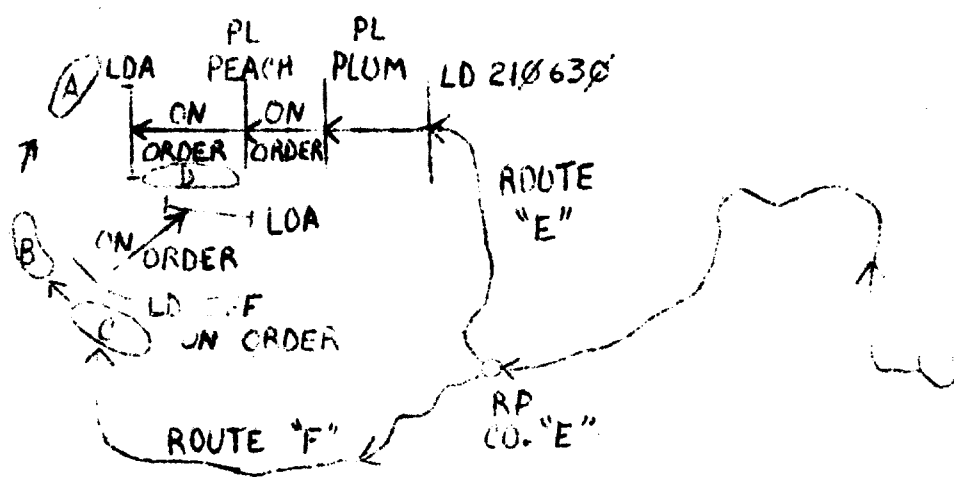 PL PL
A LDA PEACH PLUM LD 210630
ON ON
ORDER ORDER
D
ROUTE
"E"
LOA
B ON
ORDER
LD
C ON ORDER
RP
CO. "E"
ROUTE "F"